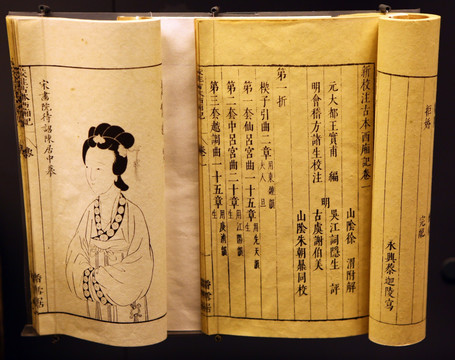 新校注古本西廂記卷一
元大都王實甫 編
明會稽方諸生校注
山陰徐 渭附解
明吳江詞隱生 評
古虞謝伯美
山陰朱朝鼎同校
第一折
楔子引曲二章 用東鍾韻 夫人 旦
第一套仙呂宮曲一十五章 用先天韻 生
第二套中呂宮曲二十章 用江陽韻 生
第三套越調曲一十五章 用庚清韻 生
宋畫院待詔陳居中摹